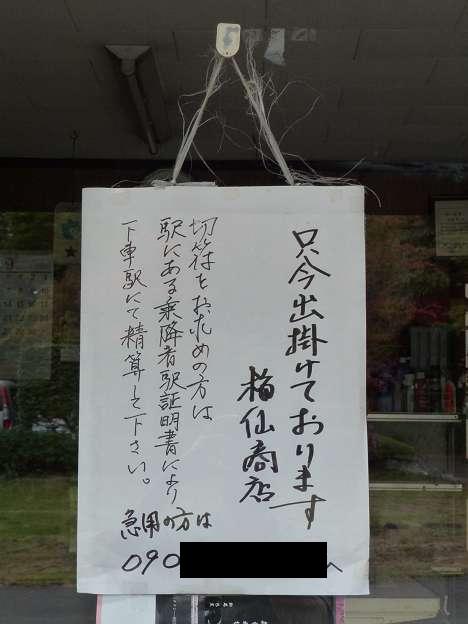 只今出掛けております
柏仙商店
切符をお求めの方は
駅にある乗降者駅証明書により
下車駅にて精算して下さい。
急用の方は
090
へ